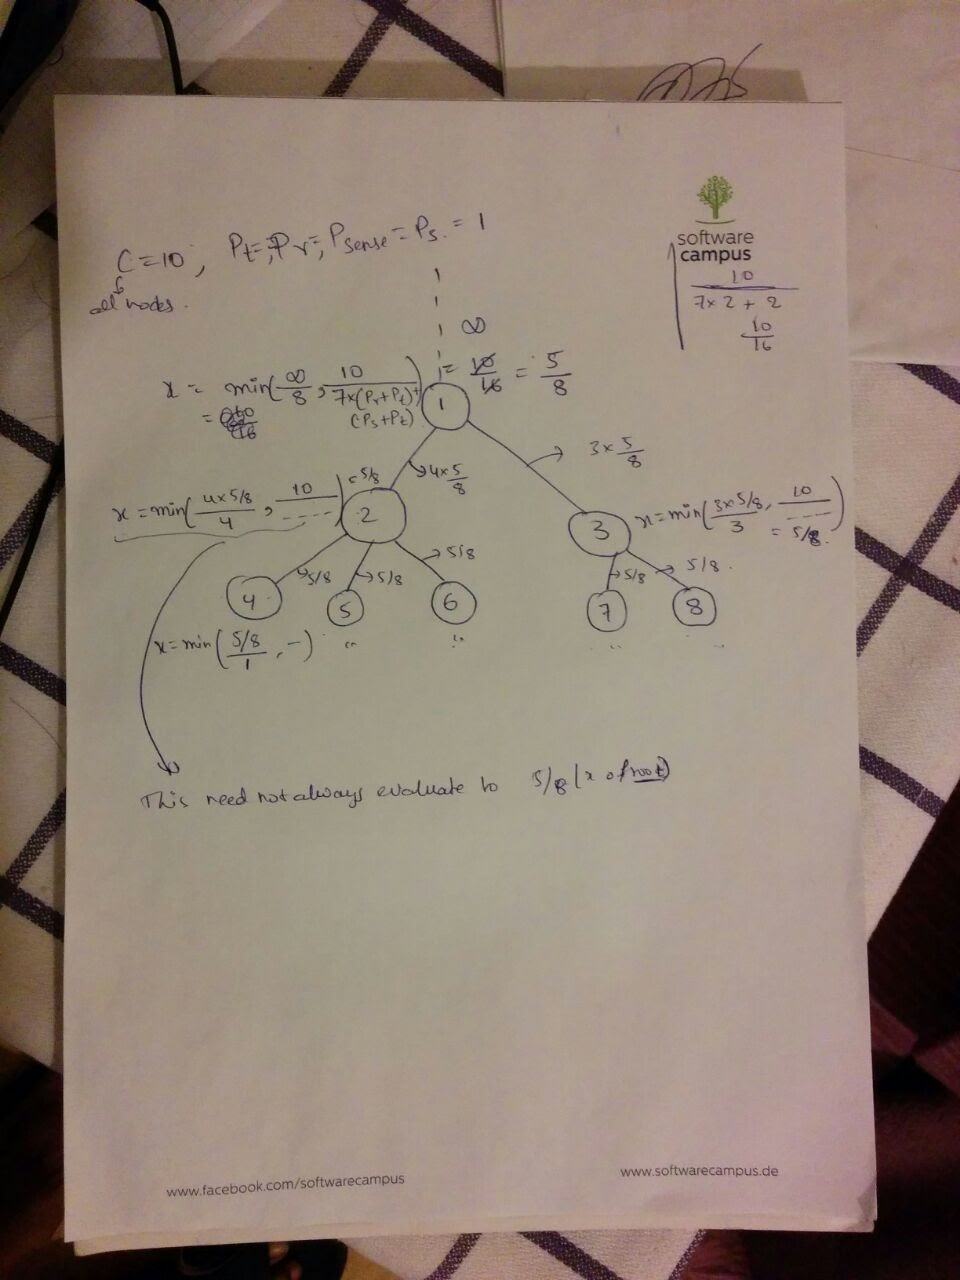 C = 10 ; Pt = ; Pr = ; Psense = Ps. = 1
all nodes.
software
campus
10
7 x 2 + 2
10
16
∞
x = min( ∞/8 , 10 / 7x(Pr+Pt)+(Ps+Pt) ) = 10/16 = 5/8
1
4 x 5/8
3 x 5/8
x = min( 4x5/8 / 4 , 10 / ---- ) = 5/8
2
3
x = min( 3x5/8 / 3 , 10 / ---- ) = 5/8.
5/8
5/8
5/8
5/8
5/8.
4
5
6
7
8
x = min( 5/8 / 1 , - )
"
"
"
"
This need not always evaluate to 5/8 (x of root)
www.facebook.com/softwarecampus
www.softwarecampus.de